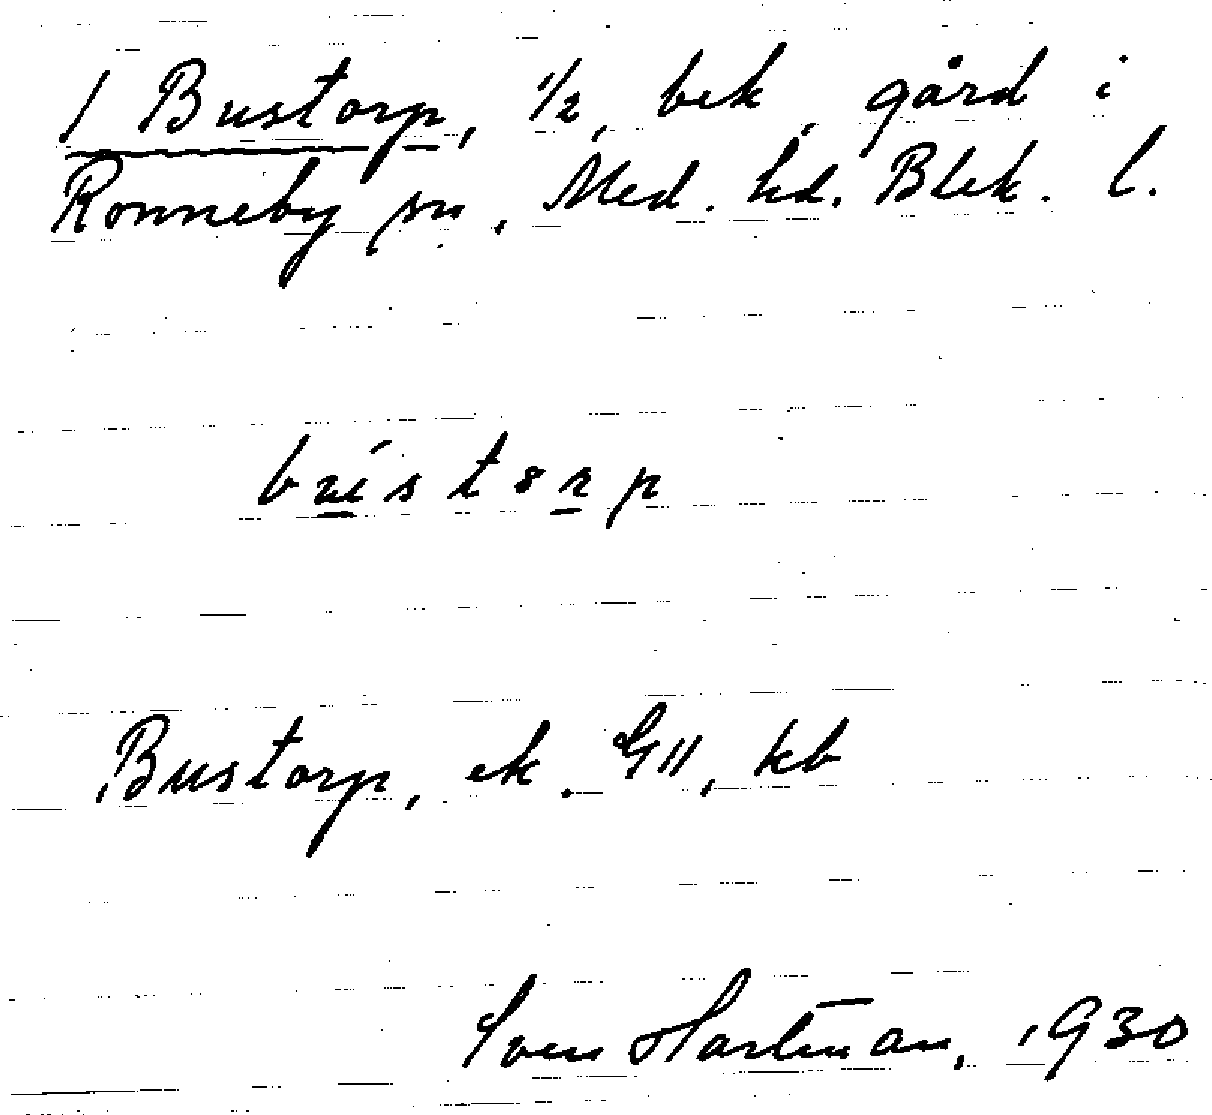 1 Bustorp, 1/2, bek, gård i
Ronneby sn, Med. hd. Blek. l.
Bustorp, ek. G11, kb
Sven Hartman, 1930